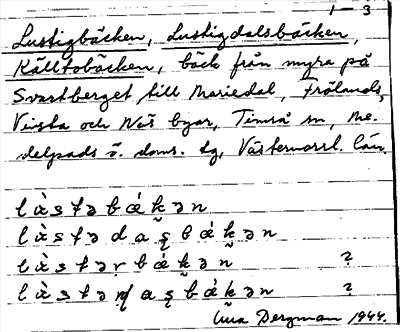 1 — 3
Lustigbäcken, Lustigdalsbäcken,
Källtobäcken, bäck från myra på
Svartberget, till Mariedal, Frölands,
Vivsta och Näs byar, Timrå sn, Me-
delpads ö. doms. tg, Västernorrl. län.
lùstəbɛ́k̬ən
lùstədaş̬bɛ́k̬ən
lùstərbɛ́k̬ən ?
lùstəɳɖaşbɛ́k̬ən ?
Bergman 1944.